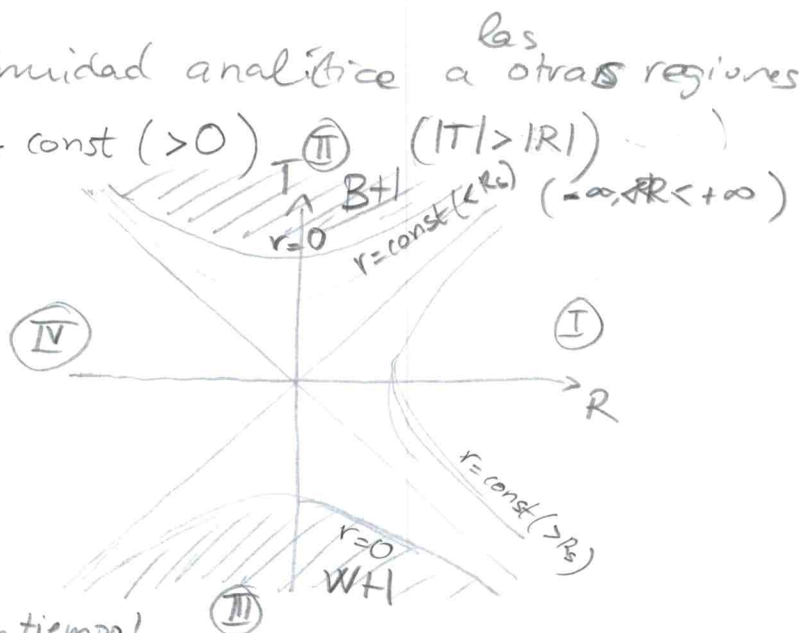 las
nuidad analítice a otras regiones
const (>0) II (|T|>|R|)
T BH r=const(<Rs) (-∞,R<+∞)
r=0
IV I
R
r=const(>Rs)
r=0
WH
III
tiempo!